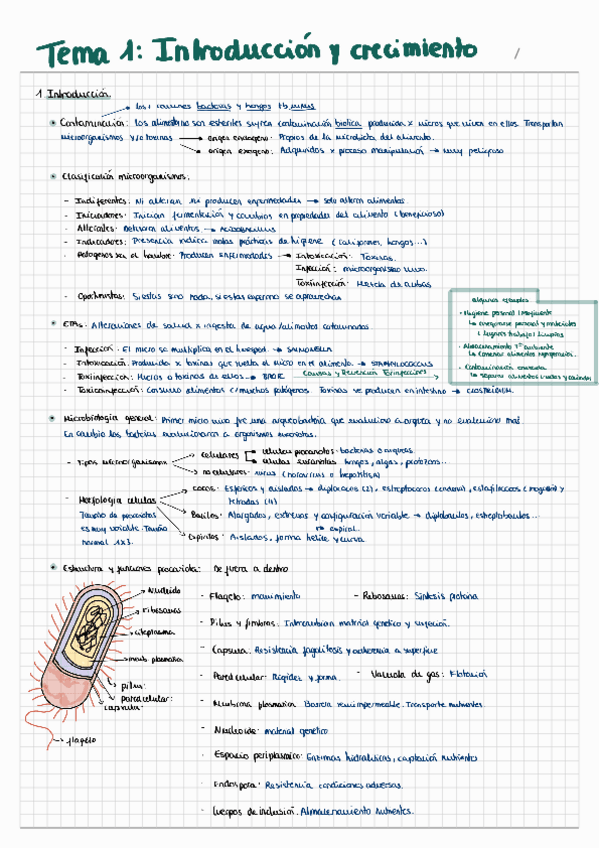 Tema 1: Introducción y crecimiento
1 Introducción
los + comunes bacterias y hongos tb virus
Contaminación: los alimentos son estériles sufren contaminación biótica producida x micros que viven en ellos. Transportan
microorganismos y/o toxinas
origen endógeno: Propios de la microbiota del alimento.
origen exógeno: Adquiridos x proceso manipulación → muy peligroso
Clasificación microorganismos:
- Indiferentes: Ni alteran ni producen enfermedades → solo alteran alimentos.
- Iniciadores: Inician fermentación y cambios en propiedades del alimento (beneficioso)
- Alterantes: Deterioran alimentos →
- Indicadores: Presencia indica malas prácticas de higiene (coliformes, hongos...)
- Patógenos para el hombre: Producen enfermedades → Intoxicación: Toxinas.
Infección: microorganismo vivo.
Toxiinfección: Mezcla de ambas
- Oportunistas: Si estás sano nada, si estás enfermo se aprovechan
algunos ejemplos
- Higiene personal / maquinaria
↳ asegurarse personal y materiales
lugares trabajo limpios
- Almacenamiento Tª ambiente
↳ conservar alimentos refrigeración.
- Contaminación cruzada
↳ separar alimentos crudos y cocinados
ETAs: Alteraciones de salud x ingesta de agua/alimentos contaminados.
- Infección: El micro se multiplica en el huésped → SALMONELLA
- Intoxicación: Producido x toxinas que suelta el micro en el alimento → STAPHYLOCOCCUS
- Toxiinfección: Micros o toxinas de ellos →
Causas y Prevención
- Toxiinfección: Consumo alimentos c/muchos patógenos. Toxinas se producen en intestino → CLOSTRIDIUM.
Microbiología general: Primer micro vivo fue una arqueobacteria que evolucionó a arquea y no evolucionó más.
En cambio las bacterias evolucionaron a organismos eucariotas.
- Tipos microorganismos
celulares
células procariotas: bacterias o arqueas
células eucariotas: hongos, algas, protozoos...
no celulares: virus (norovirus o hepatitis A)
- Morfología células
Tamaño de procariotas
es muy variable. Tamaño
normal 1x3.
cocos: Esféricos y aislados → diplococos (2), estreptococos (cadena), estafilococos (racimo) y
tétradas (4)
Bacilos: Alargados, extremos y configuración variable → diplobacilos, estreptobacilos...
↳ espiral.
Espirilos: Aislados, forma hélice y curva
Estructura y funciones procariota: De fuera a dentro
Nucleoide
ribosomas
citoplasma
memb. plasmática
pilus:
pared celular:
capsula:
flagelo
- Flagelo: movimiento
- Ribosomas: Síntesis proteína
- Pilus y fimbrias: Intercambian material genético y sujeción.
- Capsula: Resistencia fagocitosis y adherencia a superficie
- Pared celular: Rigidez y forma.
- Vacuola de gas: Flotación
- Membrana plasmática: Barrera semiimpermeable. Transporte nutrientes.
- Nucleoide: material genético
- Espacio periplásmico: Enzimas hidrolíticas, captación nutrientes
- Endospora: Resistencia condiciones adversas.
- Cuerpos de inclusión: Almacenamiento nutrientes.